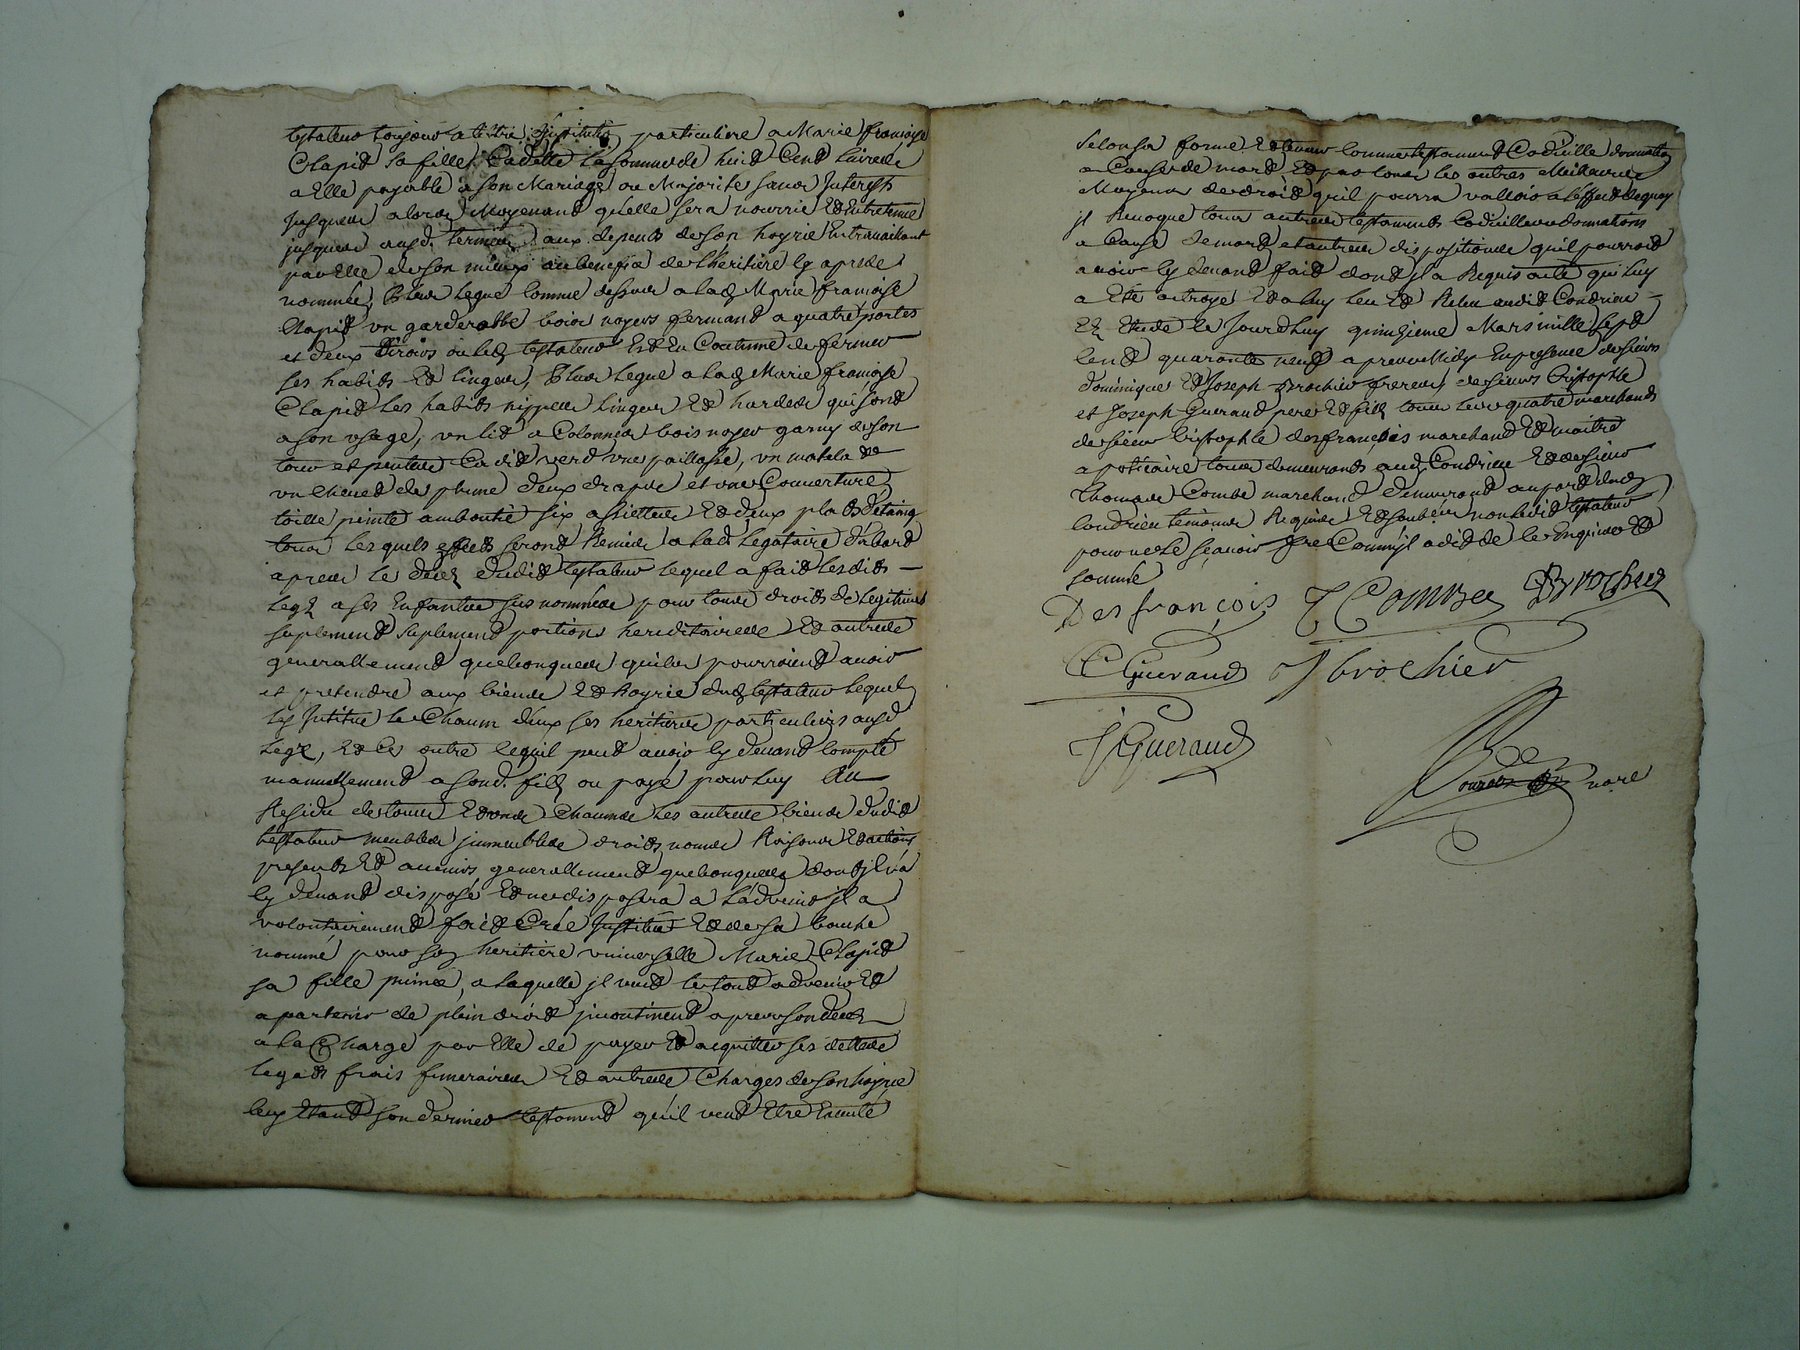 testateur toujours a titre dinstitution particuliere a Marie françoise
Clapit sa fille Cadette la somme de huit Cent Livres
a Elle payable a son Mariage ou Majorité sans Interests
jusques alors Moyenant quelle sera nourrie Et Entretenue
jusques aud. terme aux depents de son hoyrie En travaillant
par Elle de son mieux au benefice de lheritiere cy aprés
nommée, Plus legue comme dessus a lad. Marie françoise
Clapit un garderobbe bois noyers fermant a quatre portes
et deux tiroirs ou led. testateur Est En Coutume de fermer
ses habits Et linges, Plus legue a lad. Marie françoise
Clapit les habits nippes linges Et hardes qui sont
a son usage, un lit a Colonnes bois noyer garny de son
tour et pentes Cadit verd une paillasse, un matela de
un chevet de plume deux draps et une Couverture
toille peinte six assiettes Et deux plats détaing
tous lesquels effets seront Remis a lad. legataire
apres le decez dudit testateur lequel a fait lesdits
legz a ses Enfants susnommés pour tous droits de legitimes
suplement suplement portions hereditaires Et autres
generallement quelconques quils pourroient avoir
et pretendre aux biens Et hoyrie dud. testateur lequel
les Intitue le Chacun deux ses heritiers particuliers aud
legz, Et Ce outre lequil peut avoir cy devant compté
manuellement a sond. fils ou payé pour luy Au
Residu de tous Et uns Chacuns les autres biens dudit
testateur meubles immeubles droits noms Raisons Et actions
presents Et avenirs generallement quelconques dont il na
cy devant disposé Et ne disposera a Ladvenir il a
volontairement fait Créé Institué Et de sa bouche
nommé pour son heritiere universelle Marie Clapit
sa fille ainée, a laquelle il veut le tout advenir Et
apartenir de plein droit incontinent apres son decez
a la Charge par Elle de payer Et acquitter ses dettes
legats frais funeraires Et autres Charges de son hoyrie
Cecy Etant son dernier testament quil veut Etre Executé
selon sa forme Et teneur comme testament Codicille donnation
a Cause de mort Et par tous les autres Meilleures
Moyens de droit quil pourra valloir a leffet de quoy
il Revoque tous autres testaments Codicilles donnations
a Cause de mort et autres dispositions quil pourroit
avoir cy devant fait dont il a Requis acte qui luy
a Eté octroyé Et a luy leu Et Releu audit Condrieu
Ez Etude le Jourdhuy quinzieme Mars mille sept
Cent quarante neuf apres Midy En presence de sieurs
dominique Et Joseph Brochier freres, de sieurs Cristophle
et Joseph Gueraud pere Et fils tous les quatre marchands
de sieur Cristophle desfrançois marchand Et maitre
apoticaire tous demeurants aud. Condrieu Et de sieur
Thomas Combe marchand demeurant au port dud.
Condrieu temoins Requis Et soubsignés non ledit testateur
pour ne le sçavoir faire Comme il a dit de ce Enquis Et
sommé
Desfrançois TCombe DBrochier
CGueraud Jbrochier
JGueraud
nore